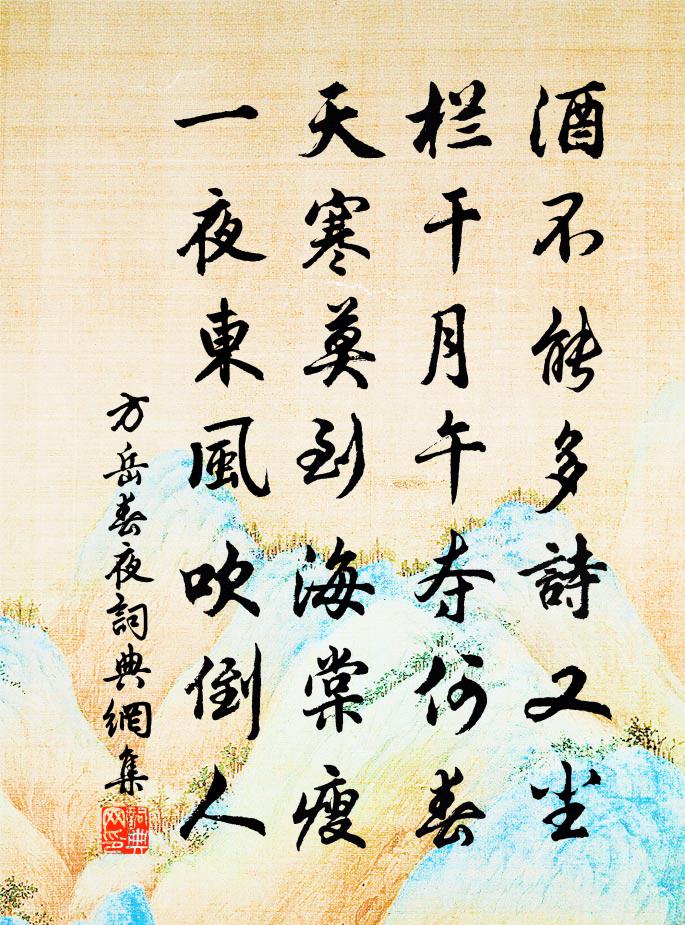 酒不能多詩又尘
栏干月午奈何春
天寒莫到海棠瘦
一夜東風吹倒人
方岳春夜詞典網集
詞典网印